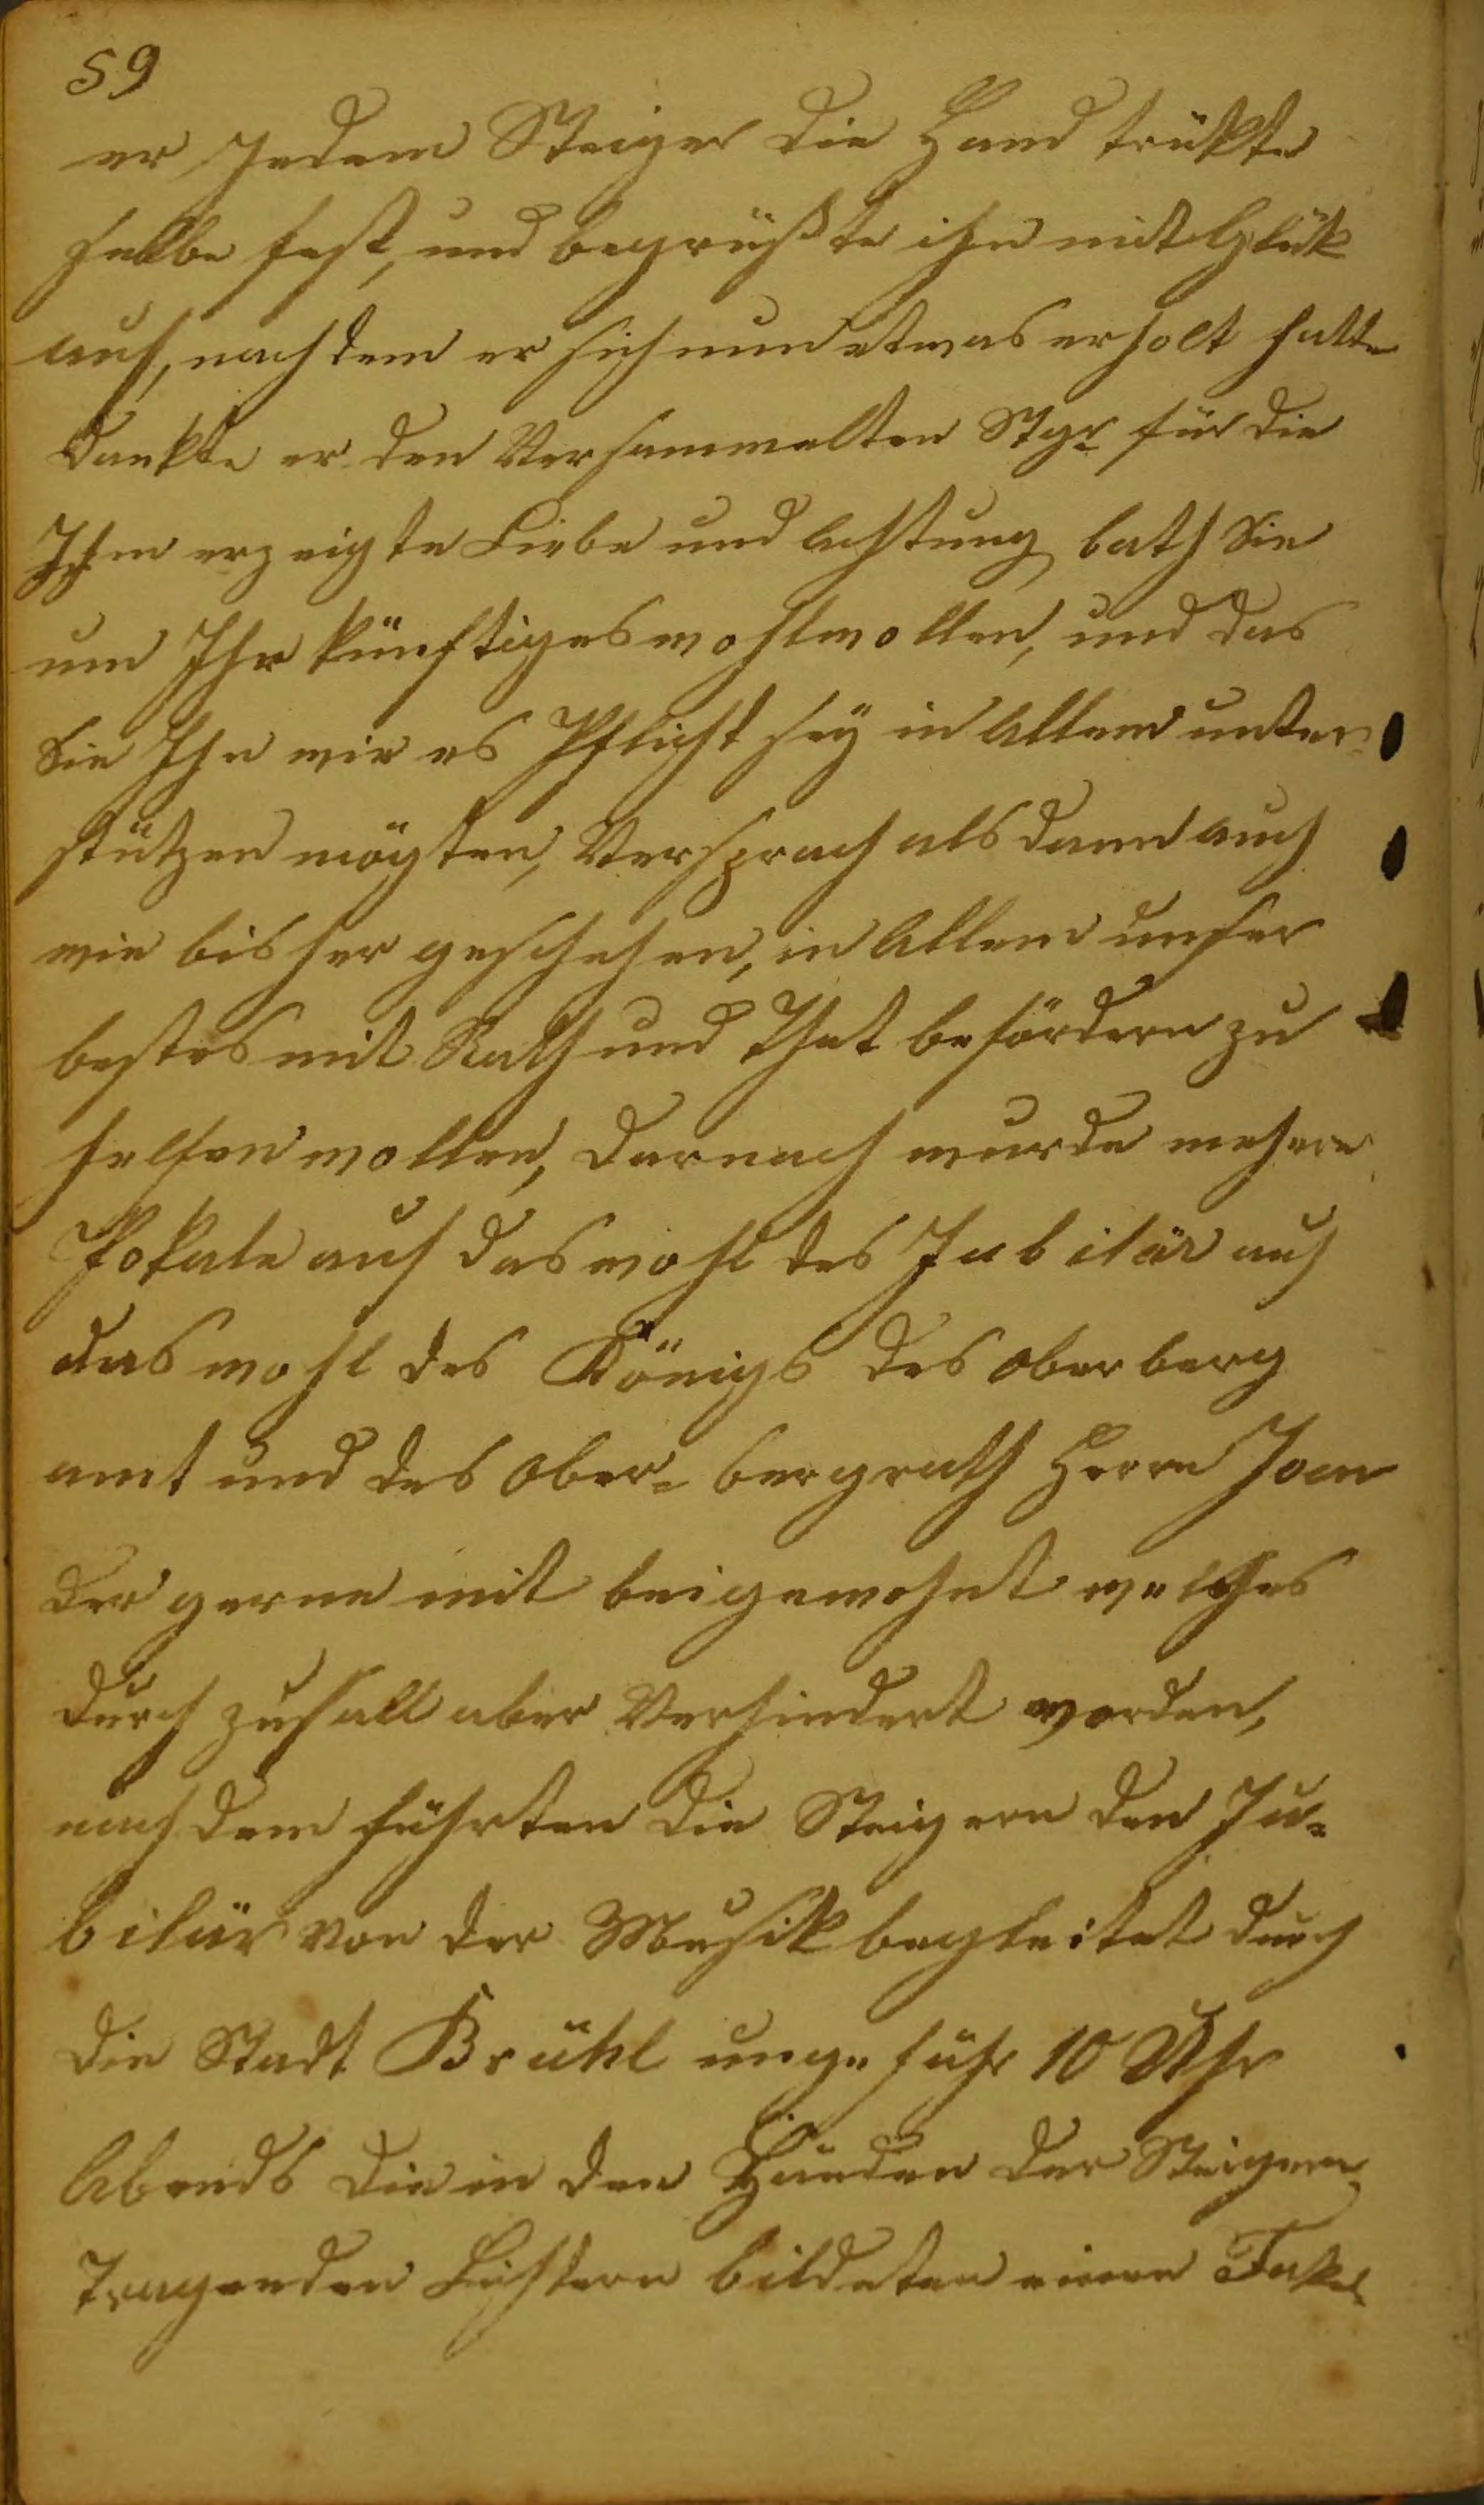 59
er Jedem Steiger die Hand trükte
selbe fest, und begrüßte ihn mit Glük
auf, nach dem er sich nun etwas erholt hatte
Dankte er den Versammelten Stgr für die
Ihm erzeigte Liebe und Achtung bath Sie
um Ihr künftiges wohlwollen, und das
Sie Ihn wie es Pflicht sey in Allem unter-
stützen mögten, Versprach als dann auch
wie bisher geschehen, in Allem unser
bestes mit Rath und That befördern zu
helfen wollen, Darnach wurde mehre
Pokale auf das wohl des Jubilär auf
das wohl des Königs des Oberberg
amt und des Ober- bergrath Herrn
der gerne mit beigewohnt welches
durch zufall aber Verhindert worden,
nach dem führten die Steigern den Ju-
bilär von der Musik begleitet durch
die Stadt Brühl ungefähr 10 Uhr
Abends die in den Händen der Steigern
Tragenden Lichtern bildeten einen Fakel-